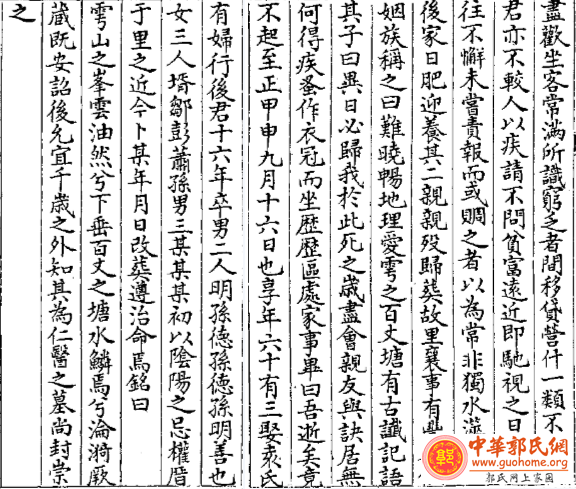 盡歡坐客常滿所識窮乏者間移貸營什一類不
君亦不較人以疾請不問貧富遠近即馳視之日
往不懈未嘗責報而或賙之者以為常非獨水
後家日肥迎養其二親親歿歸葬故里襄事有
姻族稱之曰難曉暢地理愛雩之百丈塘有古讖記語
其子曰異日必歸我於此死之歲盡會親友與訣居無
何得疾蚤作衣冠而坐歷歷區處家事畢曰吾逝矣竟
不起至正甲申九月十六日也享年六十有三娶袁氏
有婦行後君十六年卒男二人明孫德孫德孫明善也
女三人壻鄒彭蕭孫男三某某某初以陰陽之忌權厝
于里之近今卜某年月日改葬遵治命焉銘曰
雩山之峯雲油然兮下垂百丈之塘水鱗焉兮淪漪厥
藏既安詒後允宜千歲之外知其為仁醫之墓尚封崇
之
郭
中華郭氏網
www.guohome.org
郭氏网上家园